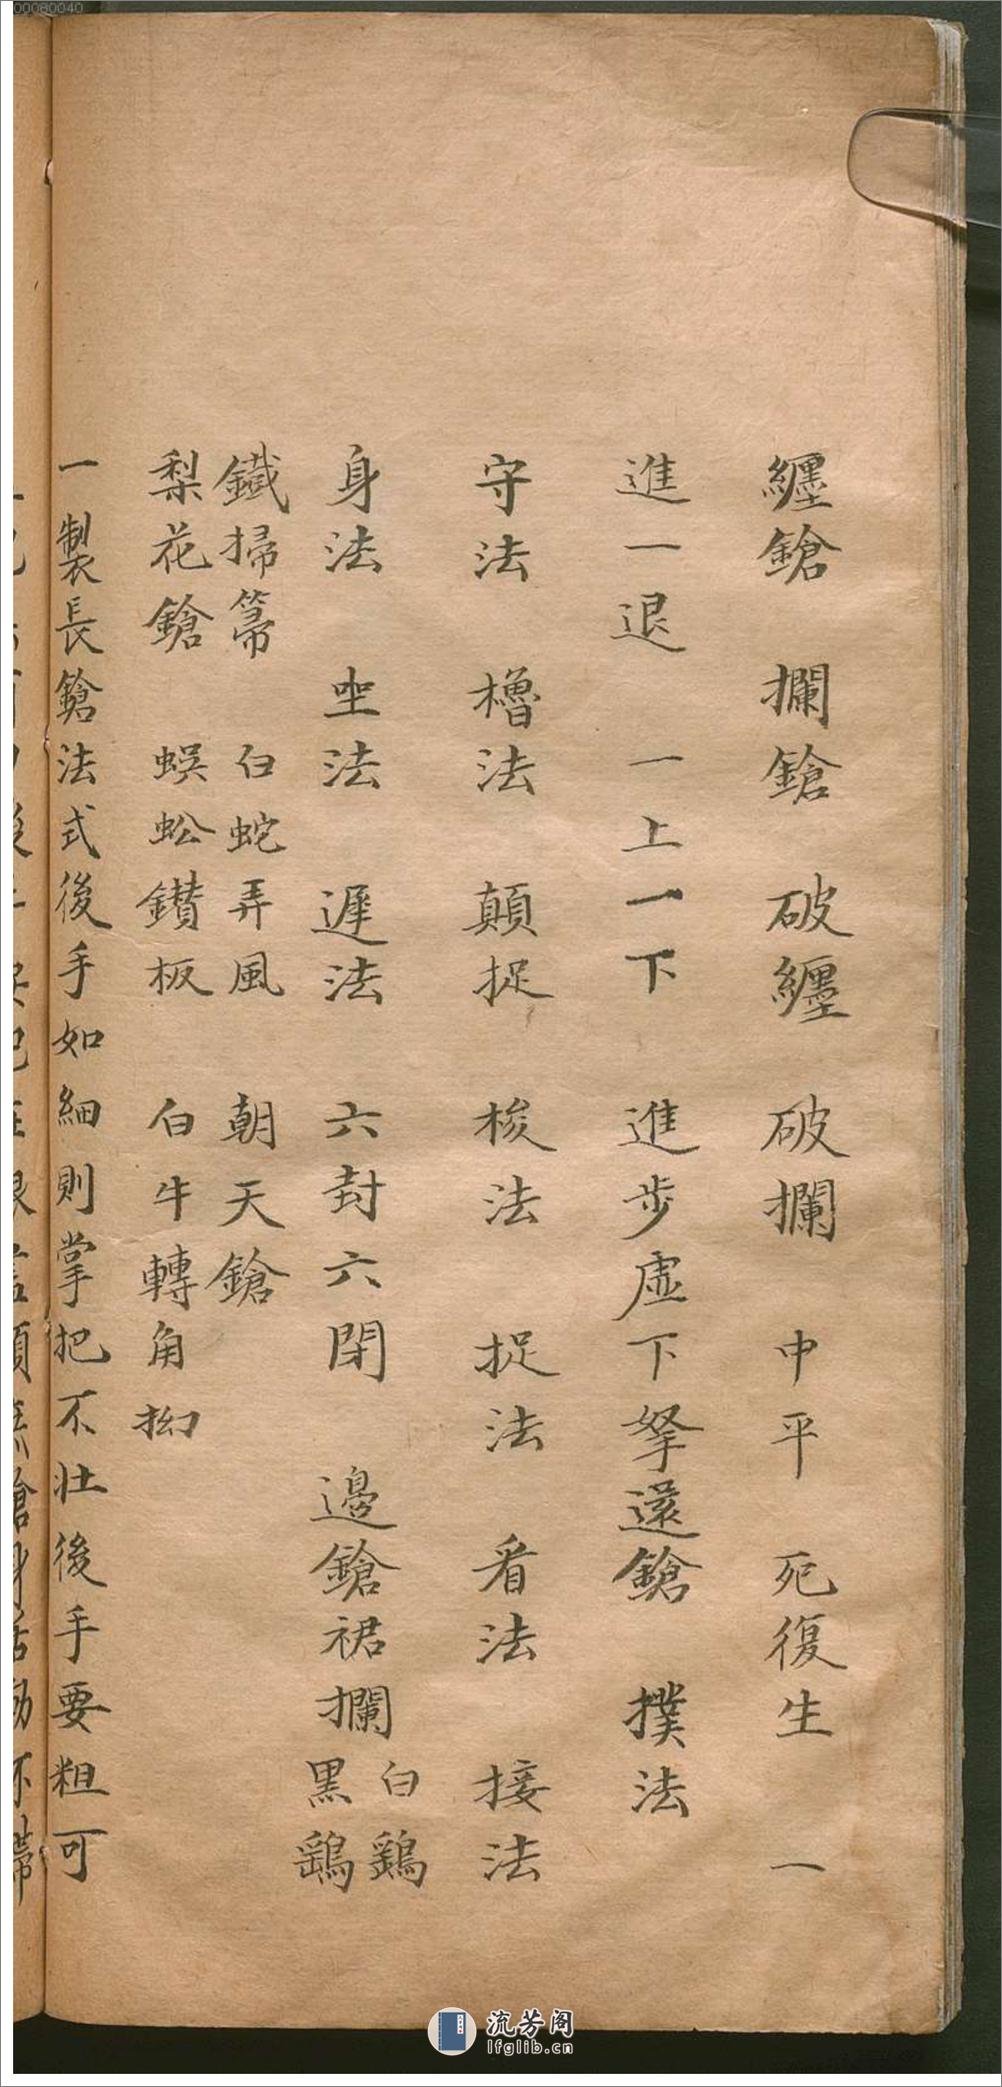 纏鎗 攔鎗 破纏 破攔 中平 死復生 一
進一退 一上一下 進步虛下拏還鎗 撲法
守法 櫓法 顛捉 梭法 捉法 看法 接法
身法 坐法 遲法 六封六閉 邊鎗裙攔 白鷂 黑鷂
鐵掃箒 白蛇弄風 朝天鎗
梨花鎗 蜈蚣鑽板 白牛轉角拗
一製長鎗法式後手如細則掌把不壯後手要粗可
00080040
流芳阁
lfglib.cn